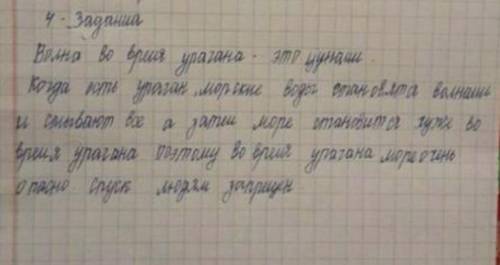 4 - Задания
Волна во время урагана - это цунами.
Когда есть ураган, морские воды становятя волнами
и смывают все а затем море становится хуже во
время урагана поэтому во время урагана море очень
опасно спуск людям запрещен